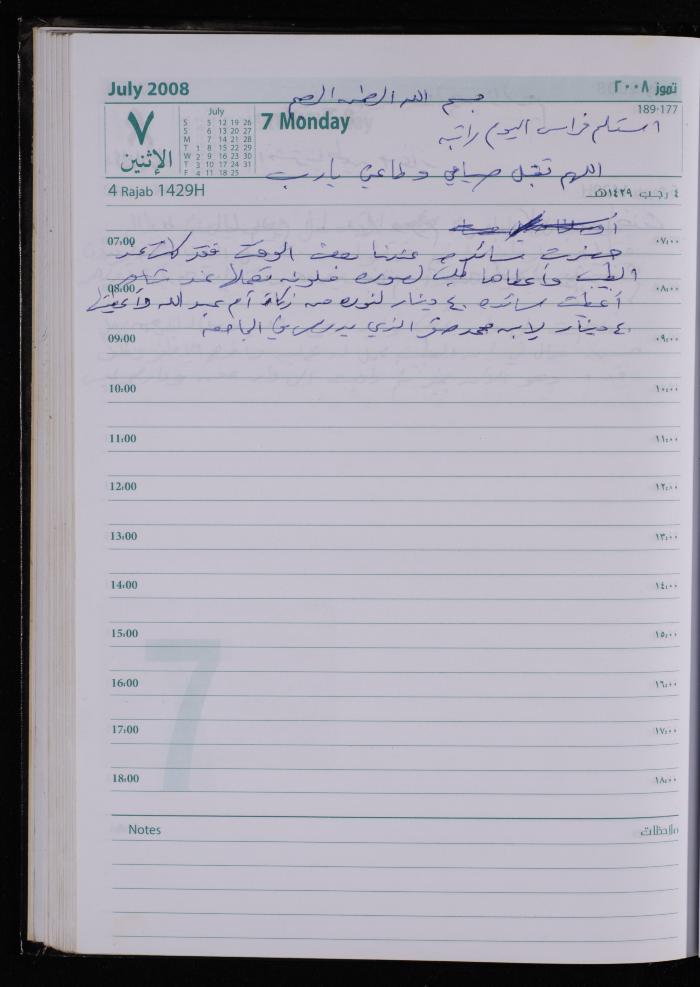 July 2008
تموز ٢٠٠٨
بسم الله الرحمن الرحيم
189-177
July
S 5 12 19 26
S 6 13 20 27
M 7 14 21 28
T 1 8 15 22 29
W 2 9 16 23 30
T 3 10 17 24 31
F 4 11 18 25
٧
الإثنين
7 Monday
استلم فراس اليوم راتبه
اللهم تقبل صيامي وطاعتي يارب
4 Rajab 1429H
٤ رجب ١٤٢٩هـ
07:00 ٠٧:٠٠
حضرت سائده عندنا بعض الوقت فقد كانت عند
الطبيب وأعطاها طلب لصوره ملونه تعملها عند
08:00 ٠٨:٠٠
أعطيت سائده ٤٠ دينار لنوره من زكاة أم عبد الله وأعطيتها
٤٠ دينار لابنه محمد الذي يدرس في الجامعة
09:00 ٠٩:٠٠
10:00 ١٠:٠٠
11:00 ١١:٠٠
12:00 ١٢:٠٠
13:00 ١٣:٠٠
14:00 ١٤:٠٠
15:00 ١٥:٠٠
16:00 ١٦:٠٠
17:00 ١٧:٠٠
18:00 ١٨:٠٠
7
Notes ملاحظات